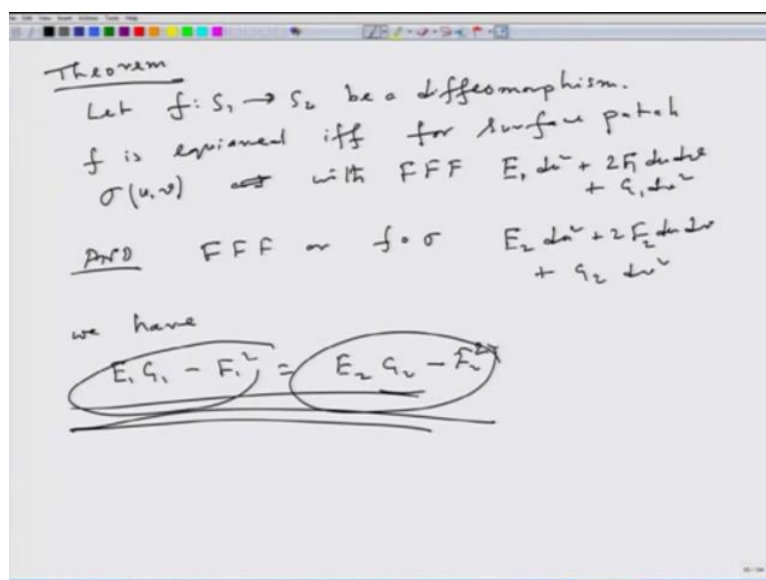 Theorem
Let f: S₁ → S₂ be a diffeomorphism.
f is equiareal iff for surface patch
σ(u,v) with FFF E₁ du² + 2F₁ du dv
+ G₁ dv²
AND FFF on f∘σ E₂ du² + 2F₂ du dv
+ G₂ dv²
we have
E₁G₁ - F₁² = E₂G₂ - F₂²